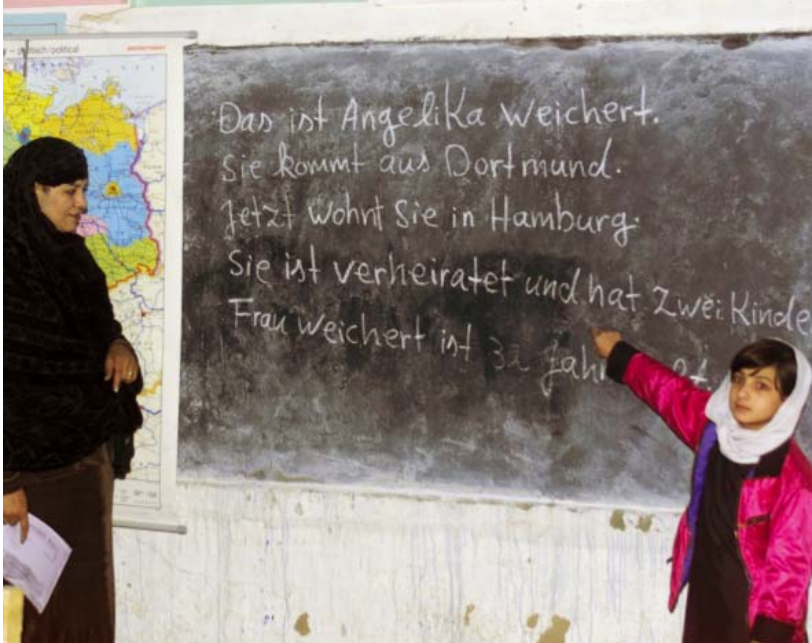 politisch/political
Das ist Angelika Weichert.
Sie kommt aus Dortmund.
Jetzt wohnt Sie in Hamburg.
Sie ist verheiratet und hat zwei Kinde
Frau Weichert ist 32 Jah